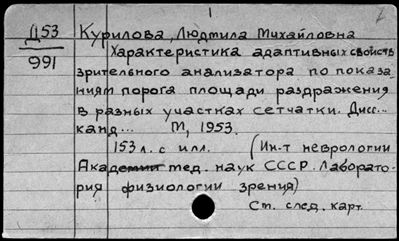 Д53 Курилова, Людмила Михайловна
991 Характеристика адаптивных свойств
зрительного анализатора по показа-
ниям порога площади раздражения
в разных участках сетчатки. Дисс...
канд... М, 1953.
153 л. с илл. (Ин-т неврологии
Академии мед. наук СССР. Лаборато-
рия физиологии зрения)
См. след. карт.